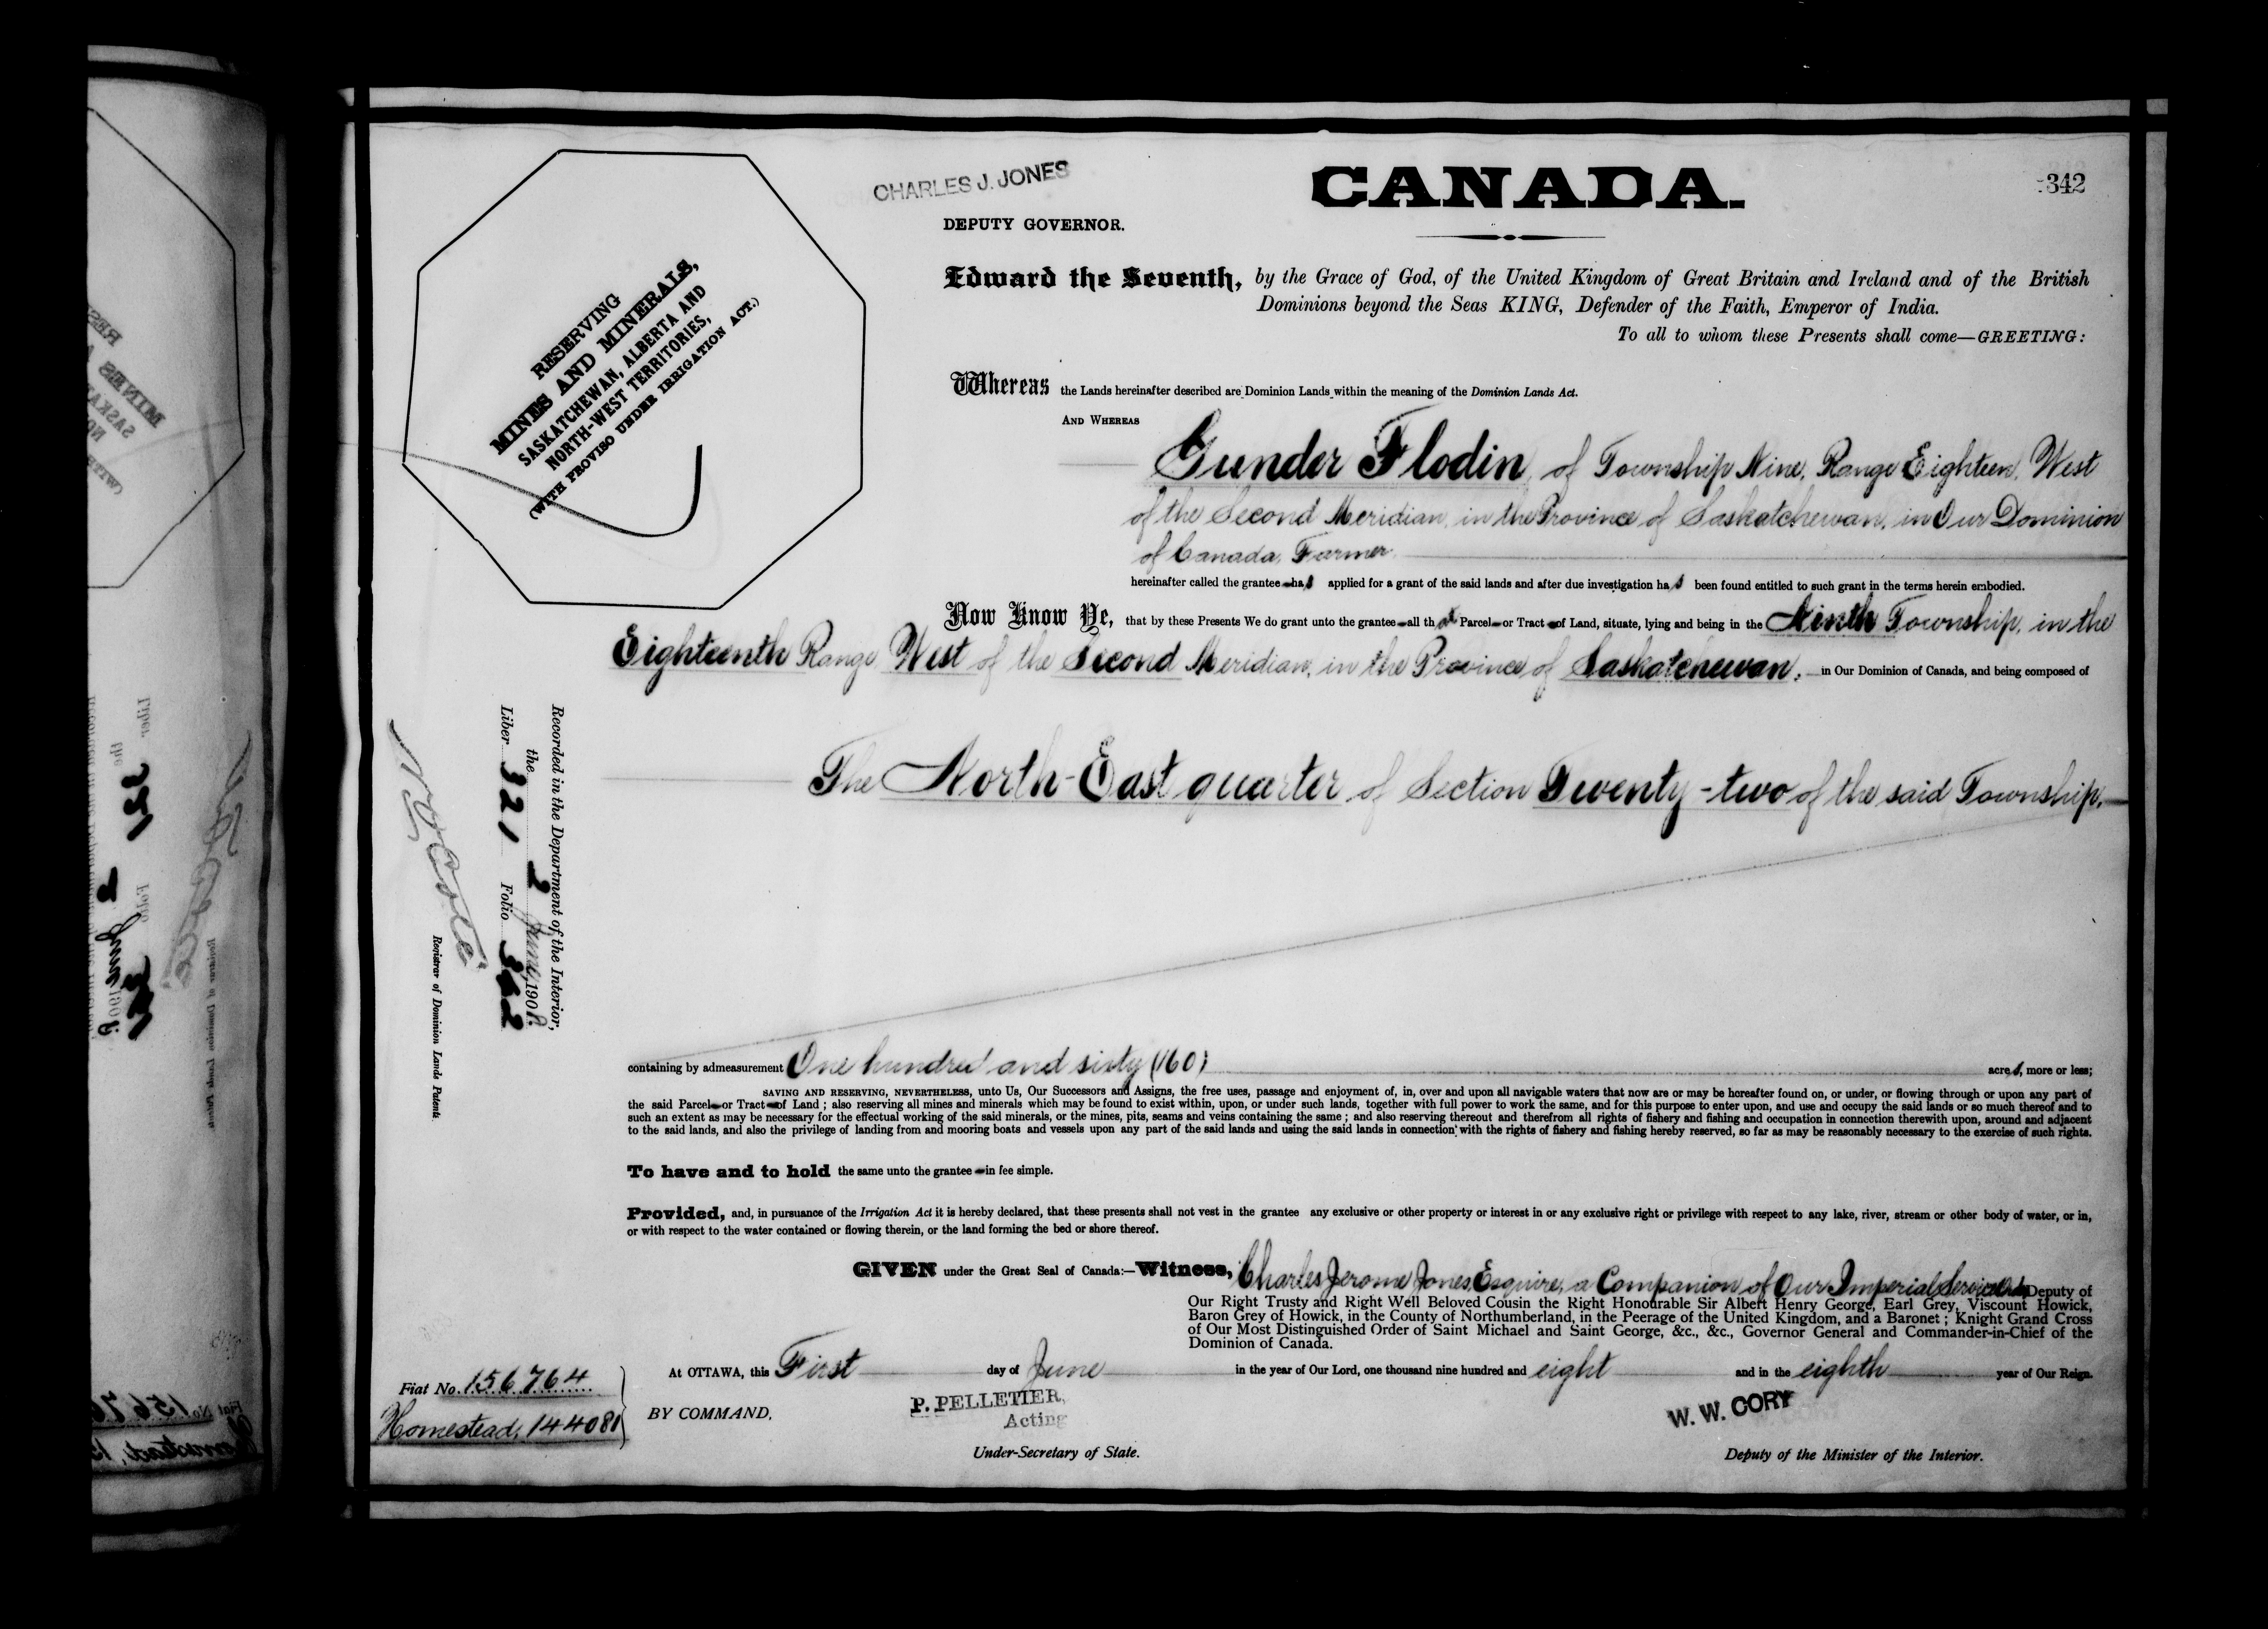 CHARLES J. JONES
DEPUTY GOVERNOR.
CANADA.
342
RESERVING
MINES AND MINERALS,
SASKATCHEWAN, ALBERTA AND
NORTH-WEST TERRITORIES,
(WITH PROVISO UNDER IRRIGATION ACT.)
Edward the Seventh, by the Grace of God, of the United Kingdom of Great Britain and Ireland and of the British
Dominions beyond the Seas KING, Defender of the Faith, Emperor of India.
To all to whom these Presents shall come—GREETING:
Whereas the Lands hereinafter described are Dominion Lands within the meaning of the Dominion Lands Act.
AND WHEREAS
Gunder Flodin, of Township Nine, Range Eighteen, West
of the Second Meridian, in the Province of Saskatchewan, in Our Dominion
of Canada, Farmer
hereinafter called the grantee has applied for a grant of the said lands and after due investigation has been found entitled to such grant in the terms herein embodied.
Now Know Ye, that by these Presents We do grant unto the grantee all that Parcel or Tract of Land, situate, lying and being in the Ninth Township, in the
Eighteenth Range West of the Second Meridian, in the Province of Saskatchewan, in Our Dominion of Canada, and being composed of
The North-East quarter of Section Twenty-two of the said Township,
Recorded in the Department of the Interior,
the 2 June, 1908.
Liber 321 Folio 342
N O Coté
Registrar of Dominion Lands Patents.
containing by admeasurement One hundred and sixty (160) acres, more or less;
SAVING AND RESERVING, NEVERTHELESS, unto Us, Our Successors and Assigns, the free uses, passage and enjoyment of, in, over and upon all navigable waters that now are or may be hereafter found on, or under, or flowing through or upon any part of
the said Parcel or Tract of Land; also reserving all mines and minerals which may be found to exist within, upon, or under such lands, together with full power to work the same, and for this purpose to enter upon, and use and occupy the said lands or so much thereof and to
such an extent as may be necessary for the effectual working of the said minerals, or the mines, pits, seams and veins containing the same; and also reserving thereout and therefrom all rights of fishery and fishing and occupation in connection therewith upon, around and adjacent
to the said lands, and also the privilege of landing from and mooring boats and vessels upon any part of the said lands and using the said lands in connection with the rights of fishery and fishing hereby reserved, so far as may be reasonably necessary to the exercise of such rights.
To have and to hold the same unto the grantee in fee simple.
Provided, and, in pursuance of the Irrigation Act it is hereby declared, that these presents shall not vest in the grantee any exclusive or other property or interest in or any exclusive right or privilege with respect to any lake, river, stream or other body of water, or in,
or with respect to the water contained or flowing therein, or the land forming the bed or shore thereof.
GIVEN under the Great Seal of Canada:—Witness, Charles Jerome Jones, Esquire, a Companion of Our Imperial Service Deputy of
Our Right Trusty and Right Well Beloved Cousin the Right Honourable Sir Albert Henry George, Earl Grey, Viscount Howick,
Baron Grey of Howick, in the County of Northumberland, in the Peerage of the United Kingdom, and a Baronet; Knight Grand Cross
of Our Most Distinguished Order of Saint Michael and Saint George, &c., &c., Governor General and Commander-in-Chief of the
Dominion of Canada.
At OTTAWA, this First day of June in the year of Our Lord, one thousand nine hundred and eight and in the eighth year of Our Reign.
Fiat No. 156764
Homestead, 144081
BY COMMAND,
P. PELLETIER,
Acting
Under-Secretary of State.
W. W. CORY
Deputy of the Minister of the Interior.